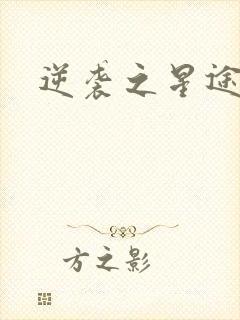 逆袭之星途
方之影